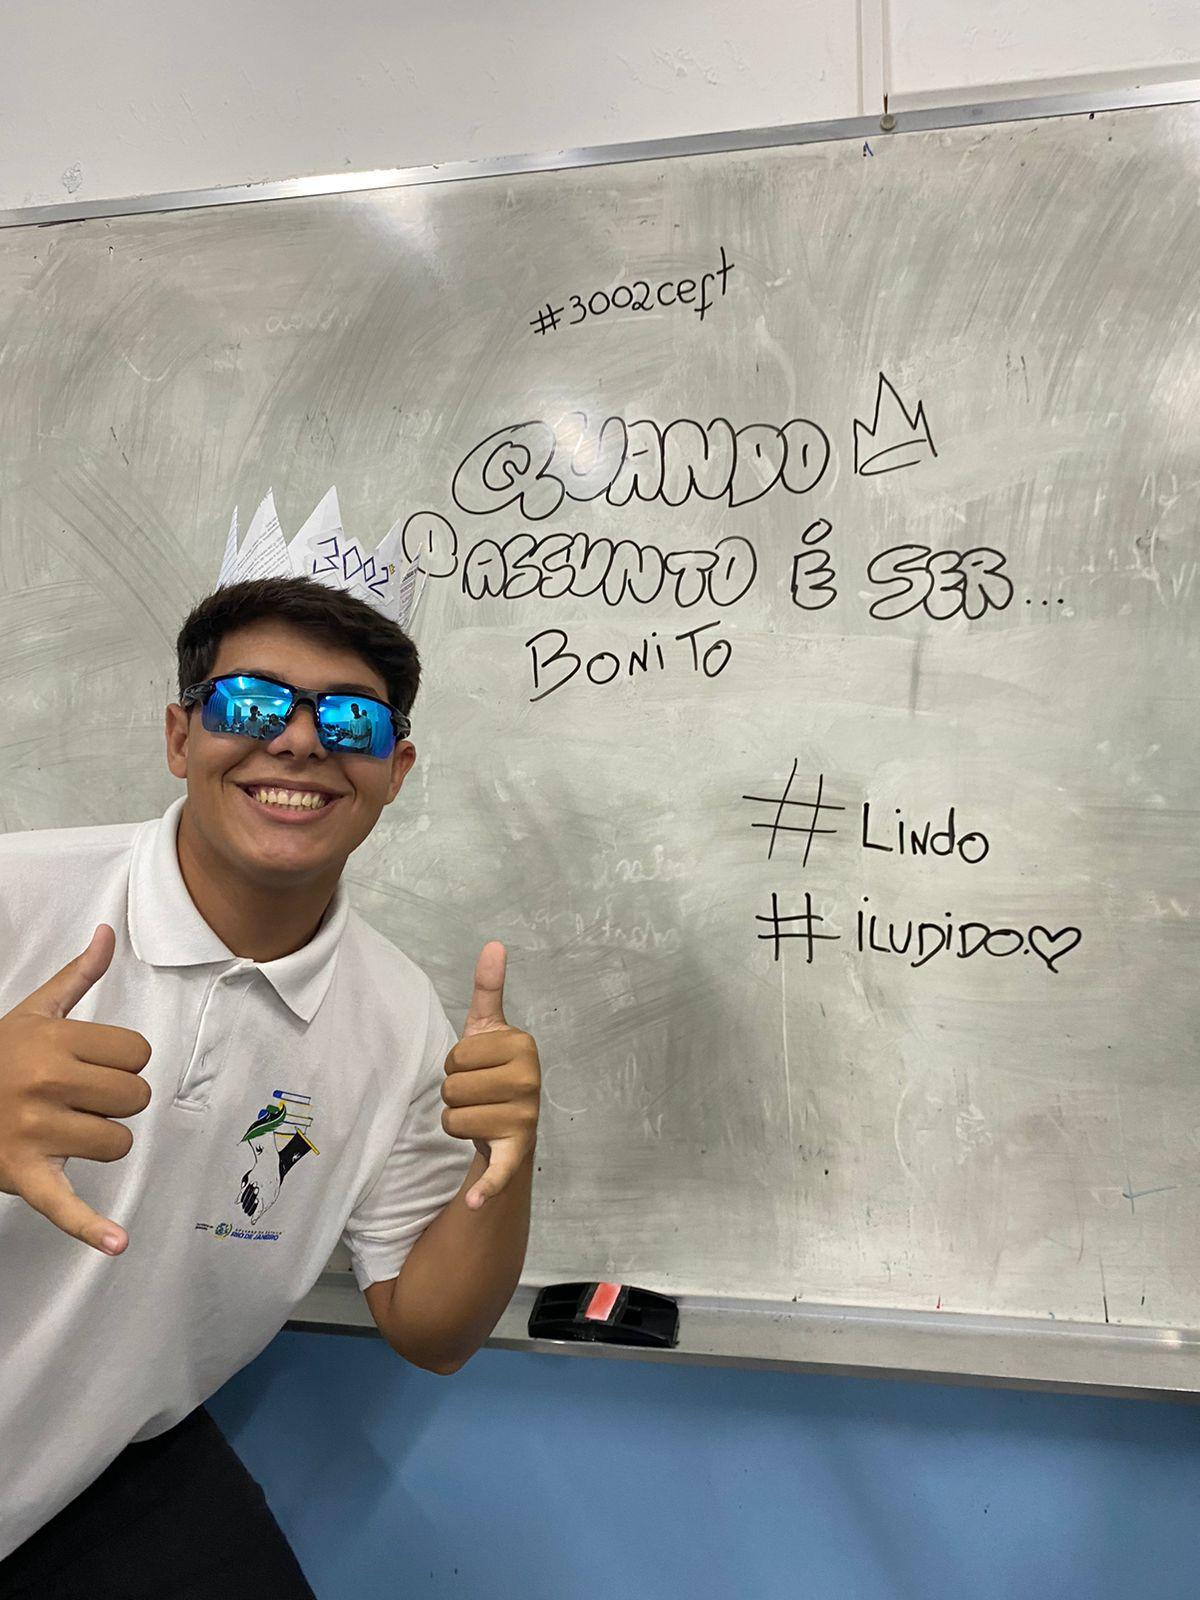 #3002ceft
QUANDO
O ASSUNTO É SER...
BONITO
#Lindo
#iLUDIDO.
3002
RIO DE JANEIRO